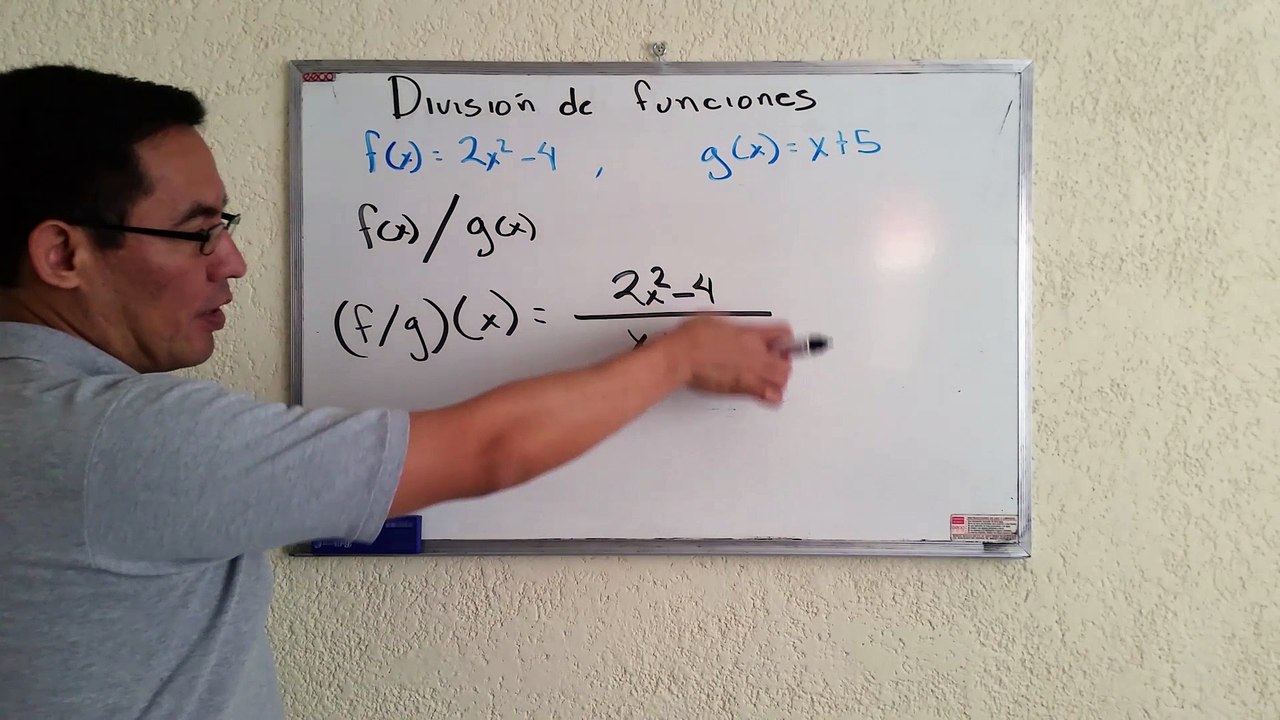 División de funciones
f(x) = 2x² - 4 , g(x) = x + 5
f(x) / g(x)
(f/g)(x) = 2x² - 4
x